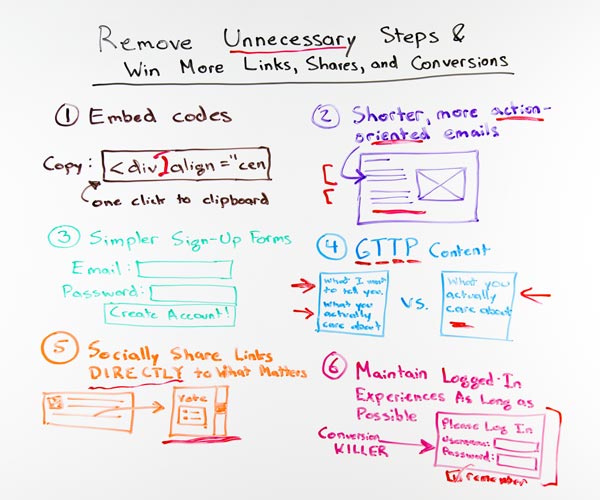 Remove Unnecessary Steps &
Win More Links, Shares, and Conversions
1 Embed codes
Copy: <div align="cen
one click to clipboard
2 Shorter, more action-
oriented emails
3 Simpler Sign-Up Forms
Email:
Password:
Create Account!
4 GTTP Content
What I want
to tell you.
What you
actually
care about
vs.
What you
actually
care about
5 Socially Share Links
DIRECTLY to What Matters
Vote
6 Maintain Logged-In
Experiences As Long as
Possible
Conversion
KILLER
Please Log In
Username:
Password:
remember